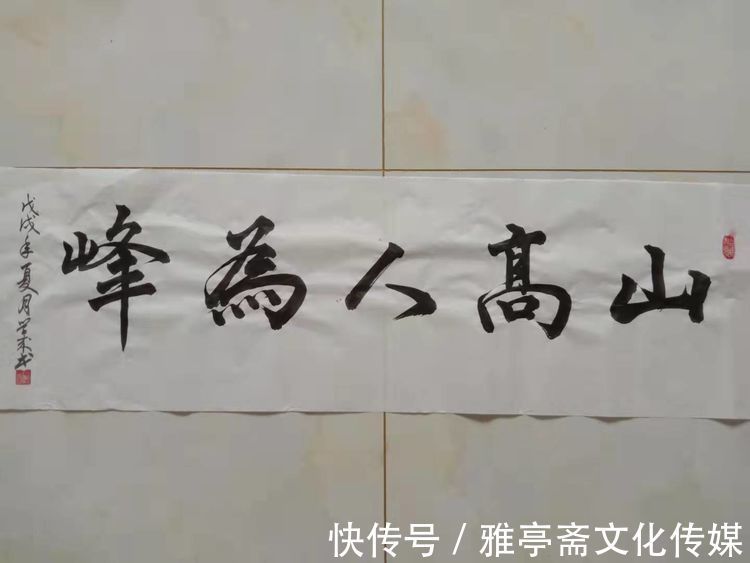 山高人為峰
戊戌年夏月
快传号 / 雅亭斋文化传媒